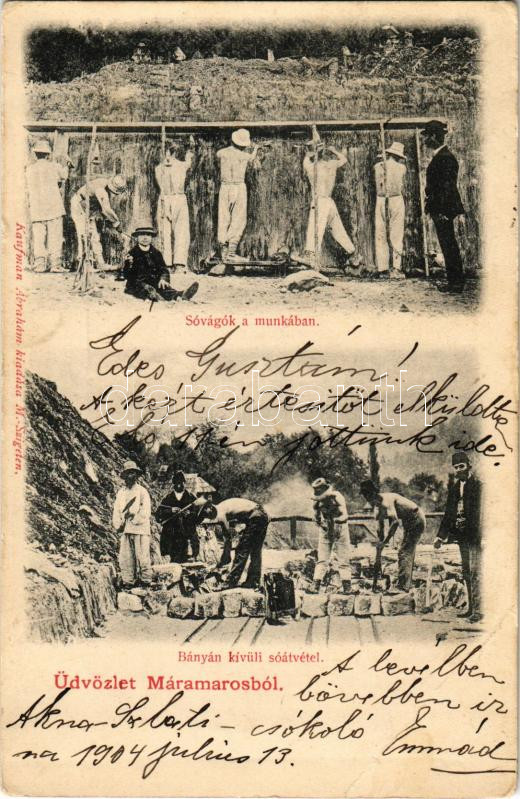 Sóvágók a munkában.
Kaufman Ábrahám kiadása M.-Szigeten.
Édes Gusztám!
A kért értesitőt elküldte
jöttünk ide.
darabanth
Bányán kívüli sóátvétel.
Üdvözlet Máramarosból.
A levélben
bővebben ir
Akna-Szlati- csókoló
na 1904 julius 13. Emmád